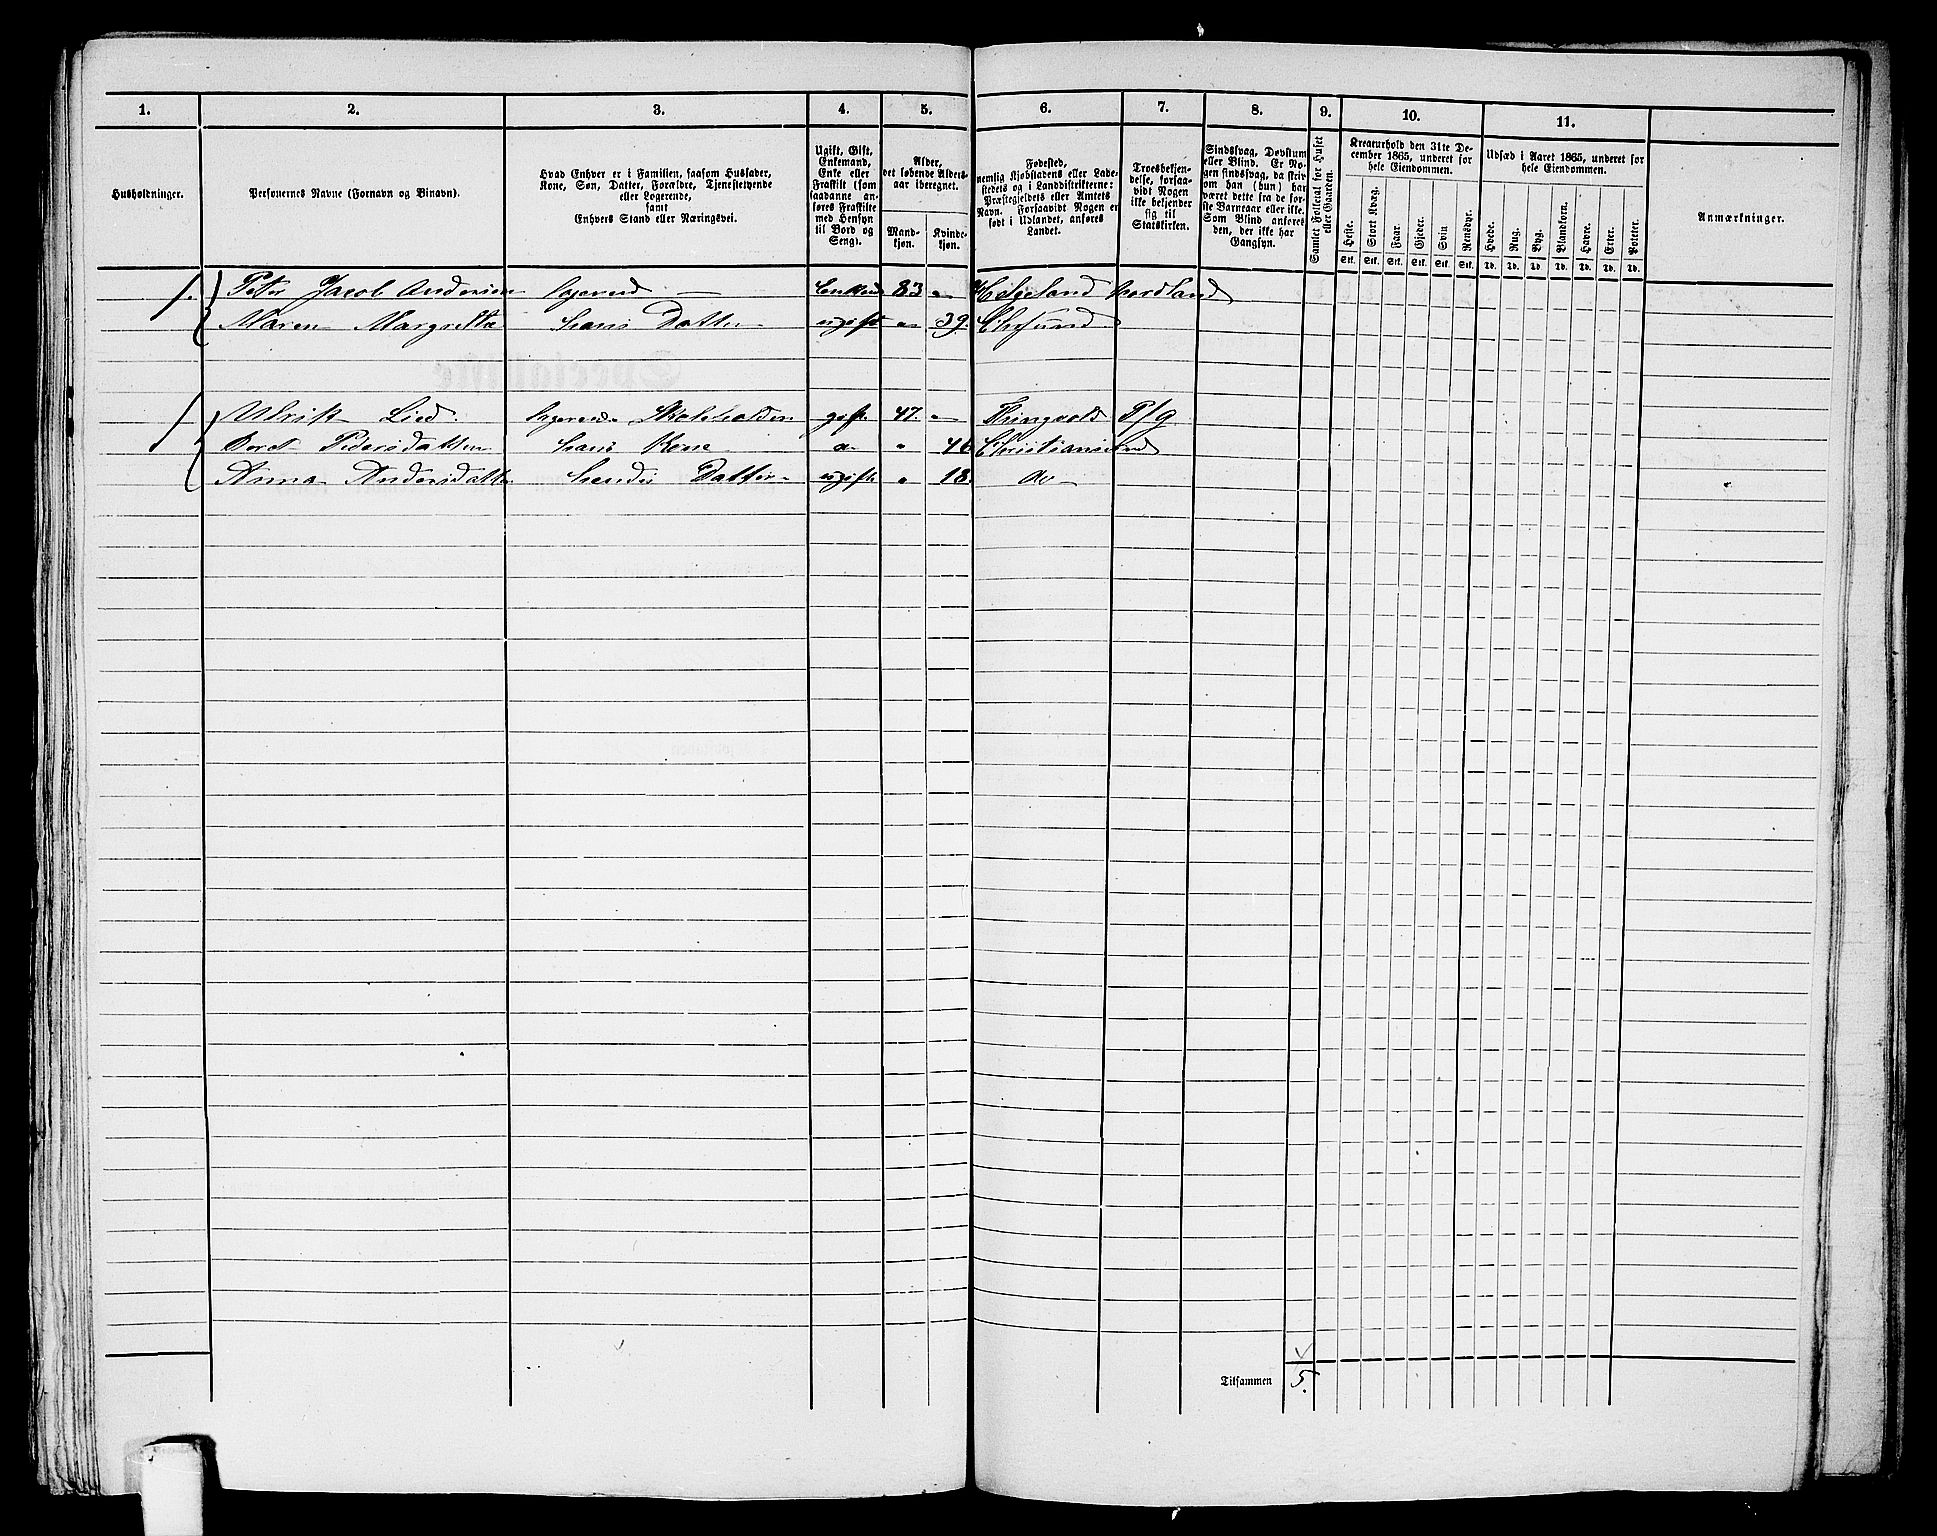 1. 2. 3. 4. 5. 6. 7. 8. 9. 10. 11.
Husholdninger.
Personernes Navne (Fornavn og Binavn).
Hvad Enhver er i Familien, saasom Husfader,
Kone, Søn, Datter, Forældre, Tjenestetyende
eller Logerende,
samt
Enhvers Stand eller Næringsvei.
Ugift, Gift,
Enkemand,
Enke eller
Fraskilt (som
saadanne an-
føres Fraskilte
med Hensyn
til Bord og
Seng).
Alder,
det løbende Alders-
aar iberegnet.
Mand-
kjøn.
Kvinde-
kjøn.
Fødested,
nemlig Kjøbstadens eller Lade-
stedets og i Landdistrikterne:
Præstegjeldets eller Amtets
Navn. Forsaavidt Nogen er
født i Udlandet, anføres
Landet.
Troesbekjen-
delse, forsaa-
vidt Nogen
ikke bekjender
sig til
Statskirken.
Sindssvag, Døvstum
eller Blind. Er No-
gen sindssvag, da skriv
om han (hun) har
været dette fra de før-
ste Barneaar eller ikke.
Som Blind anføres
den, der ikke har
Gangsyn.
Samlet Folketal for Huset
eller Gaarden.
Kreaturhold den 31te De-
cember 1865, underet for
hele Eiendommen.
Heste. Stort Kvæg. Faar. Gjeder. Svin Rensdyr.
Stk. Stk. Stk. Stk. Stk. Stk.
Udsæd i Aaret 1865, underet for
hele Eiendommen.
Hvede. Rug. Byg. Blandkorn. Havre. Erter. Poteter.
Td. Td. Td. Td. Td. Td. Td.
Anmærkninger.
1. Peter Jacob Andersen Logerend — Enkem 83 " Helgeland Nordland
Maren Margrette Hans Datter ugift " 39. Chrsund
1 Ulrik Lied. Logerende Skoleholder gift 47. " Thingvolds P/g
Beret Pedersdatter Hans Kone do " 46 Christiansund
Anna Andersdatter Hendes Datter ugift " 18. do
Tilsammen 5.